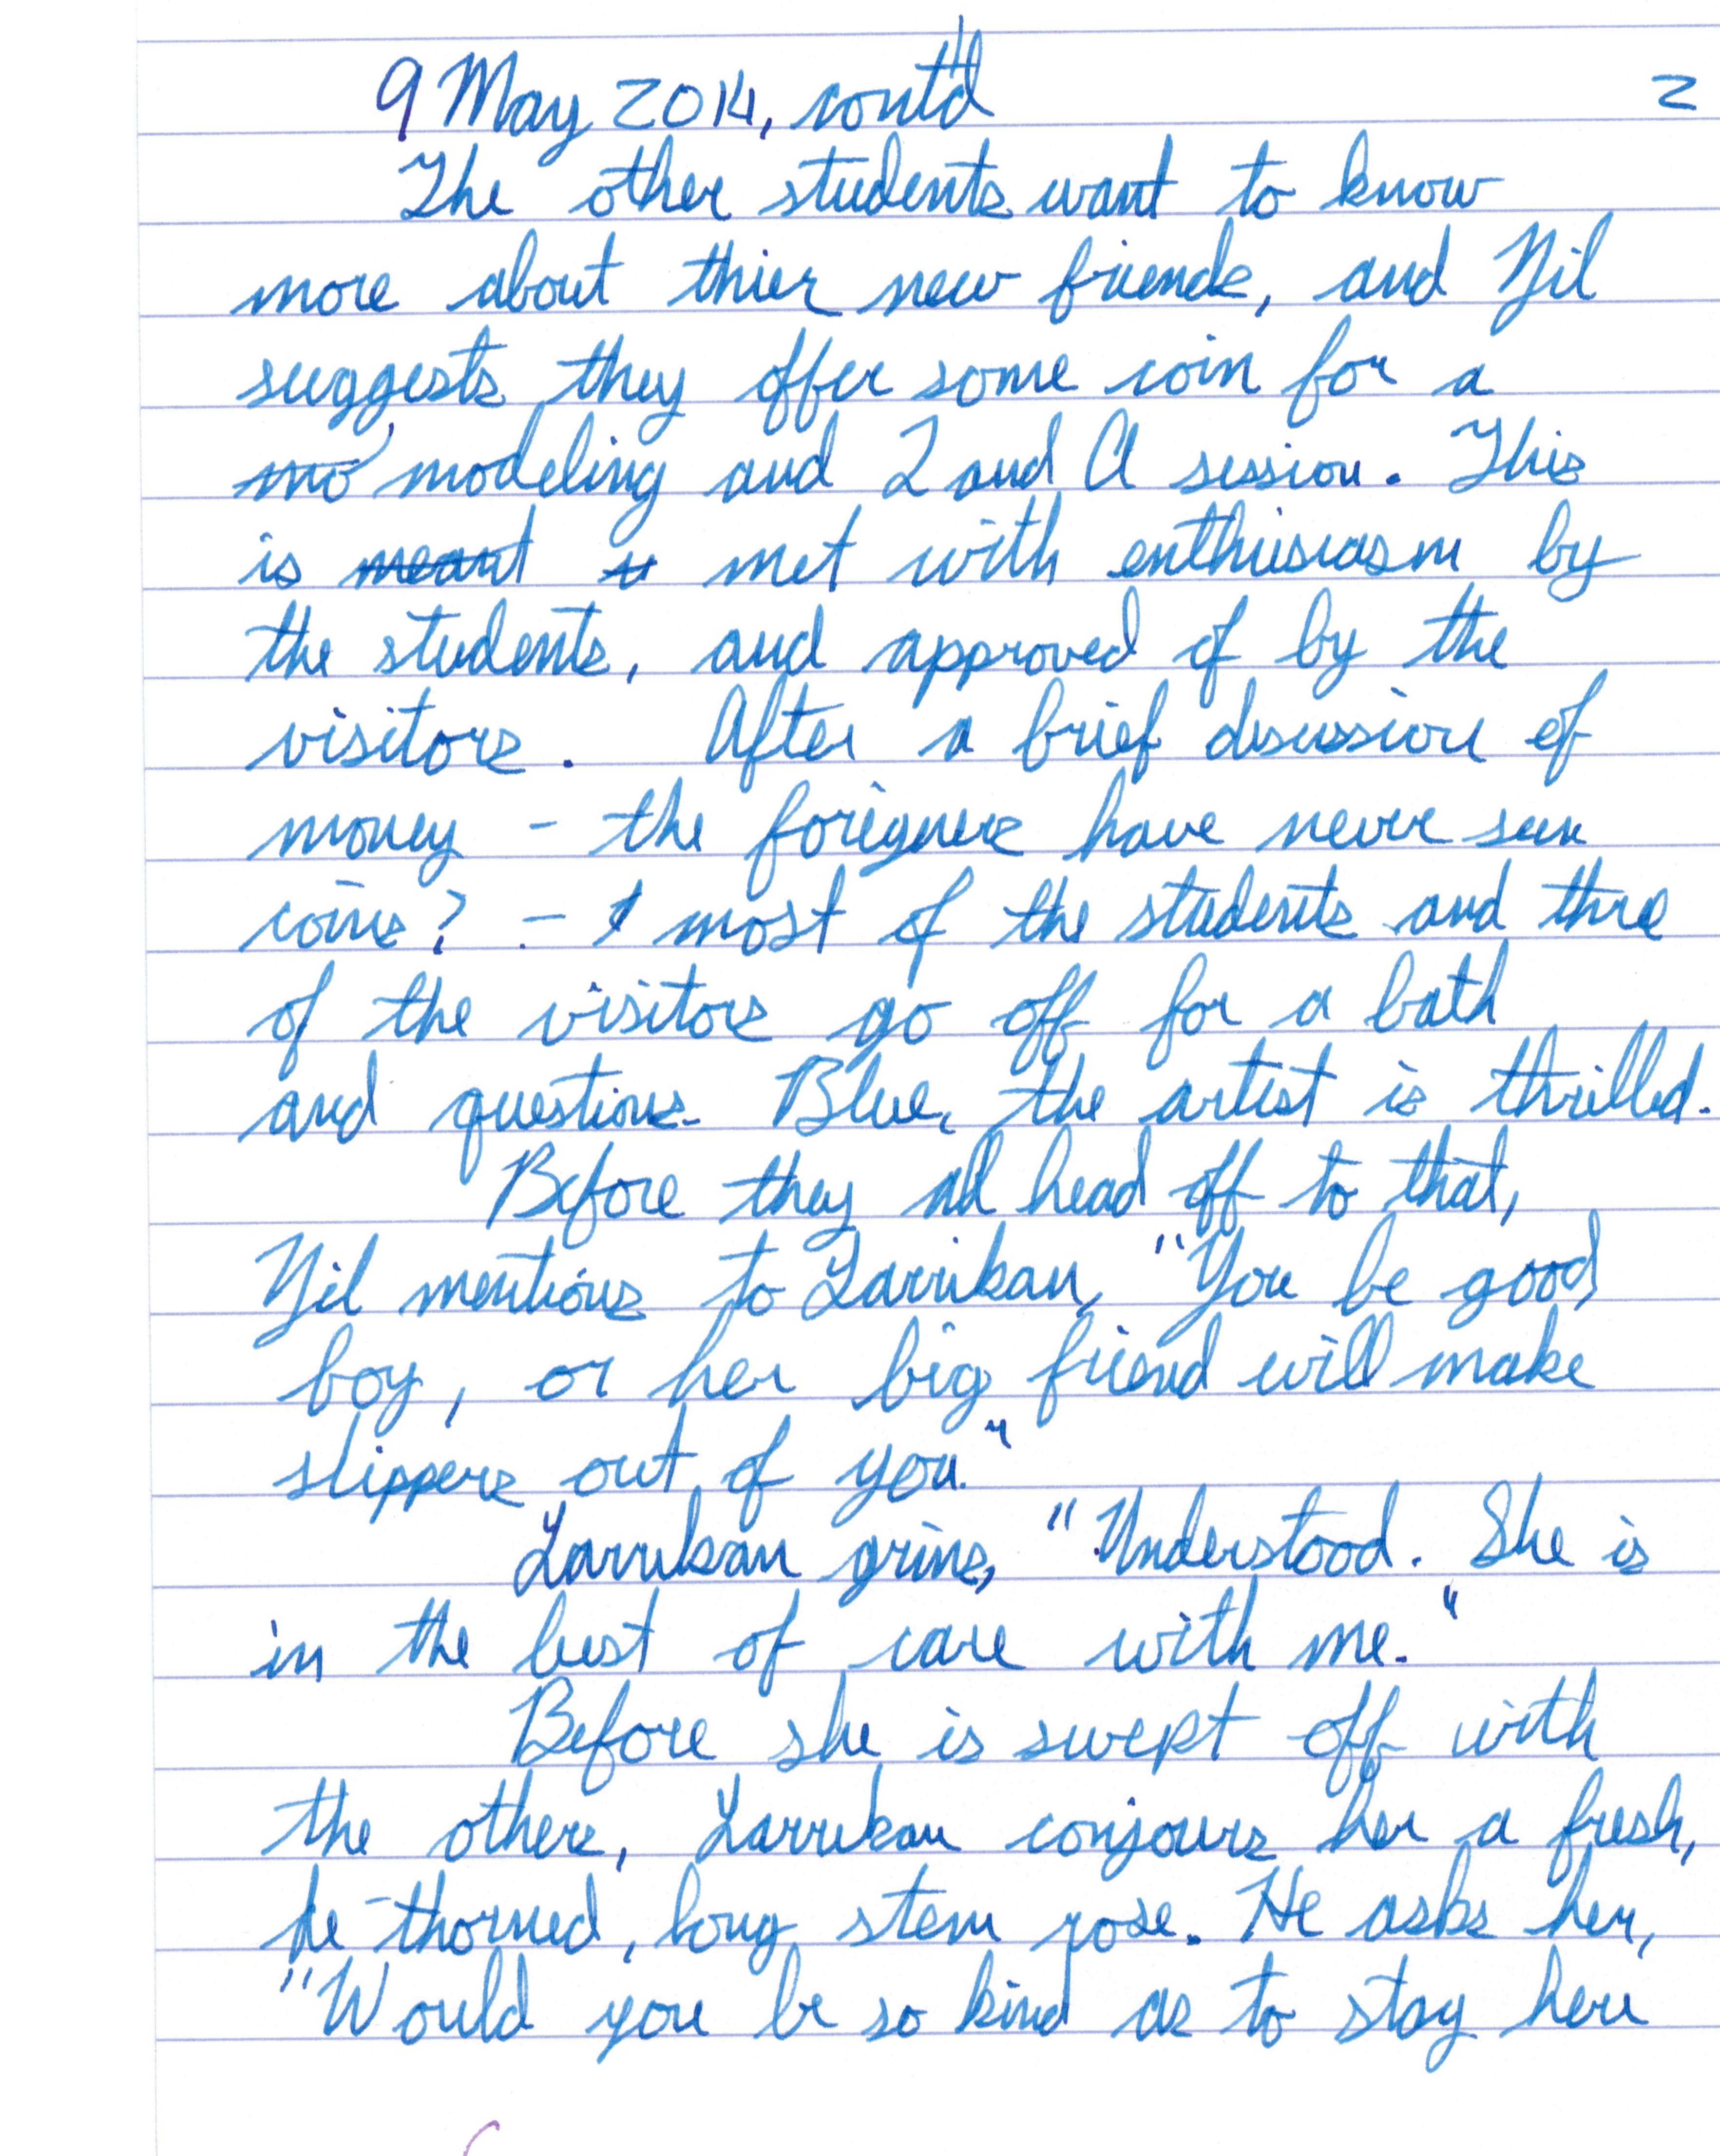 9 May 2014, cont'd 2
The other students want to know
more about thier new friends, and Nil
suggests they offer some coin for a
mo modeling and Q and A session. This
is meant met with enthusiasm by
the students, and approved of by the
visitors. After a brief discussion of
money - the foriegners have never seen
coins? - most of the students and three
of the visitors go off for a bath
and questions. Blue, the artist is thrilled.
Before they all head off to that,
Nil mentions to Larrikan, "You be good
boy, or her big friend will make
slippers out of you."
Larrikan grins, "Understood. She is
in the best of care with me."
Before she is swept off with
the others, Larrikan conjours her a fresh,
de-thorned, long stem rose. He asks her,
"Would you be so kind as to stay here